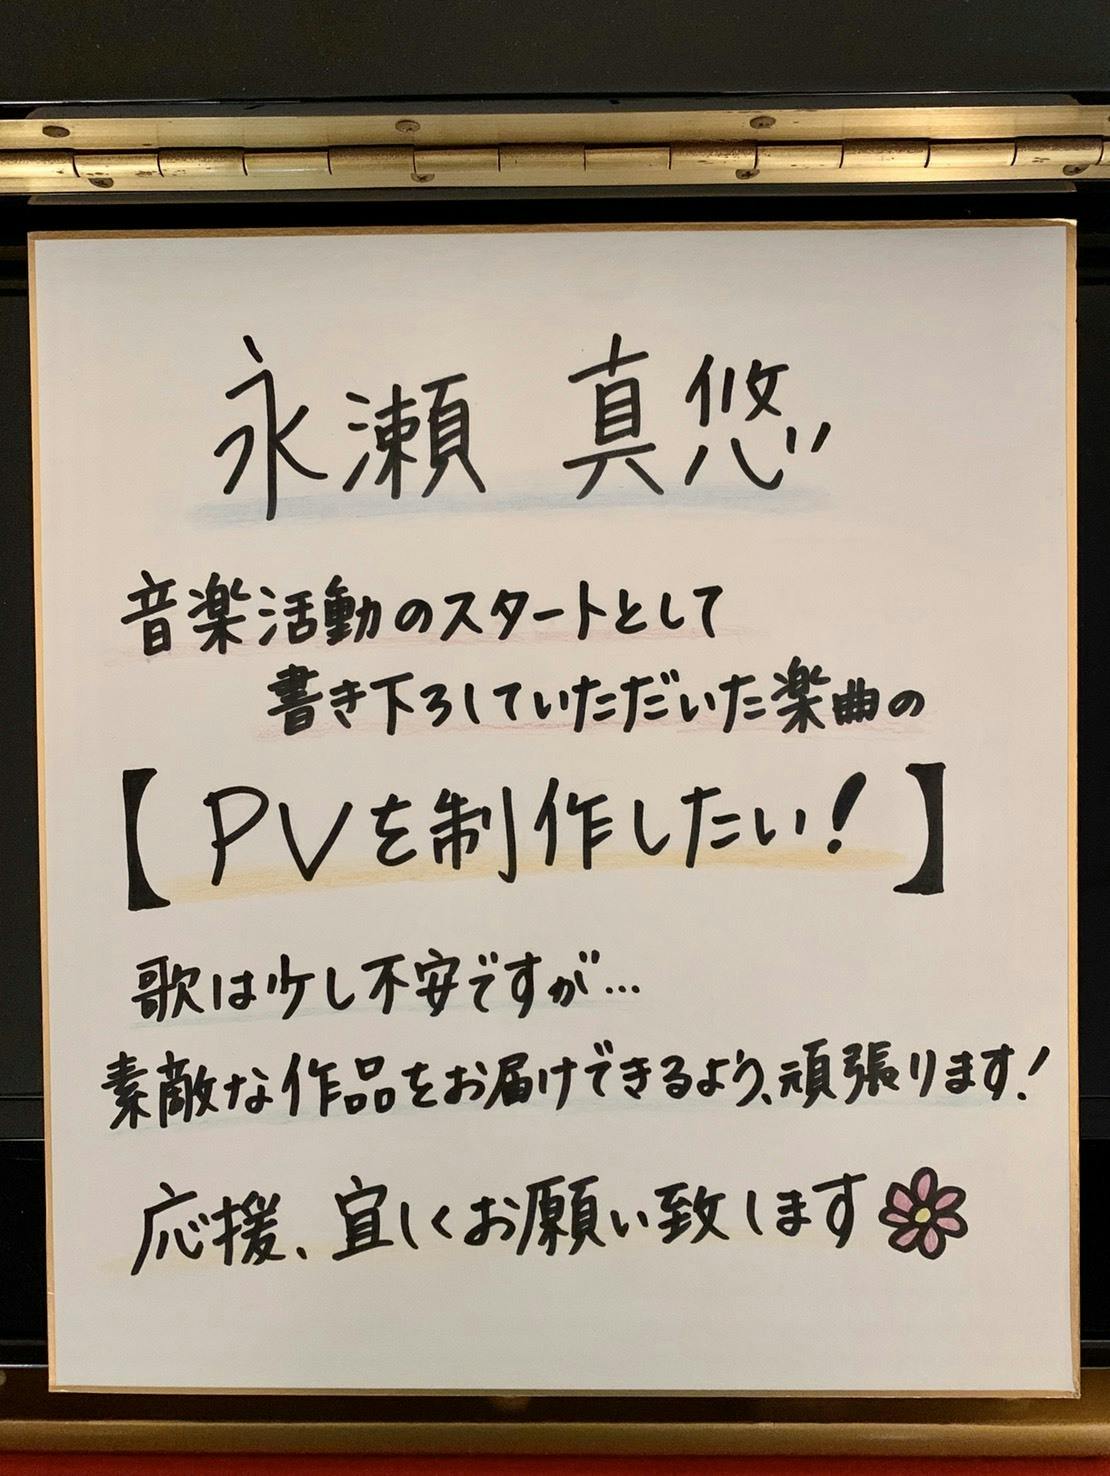 永瀬 真悠
音楽活動のスタートとして
書き下ろしていただいた楽曲の
【PVを制作したい!】
歌は少し不安ですが…
素敵な作品をお届けできるよう、頑張ります!
応援、宜しくお願い致します